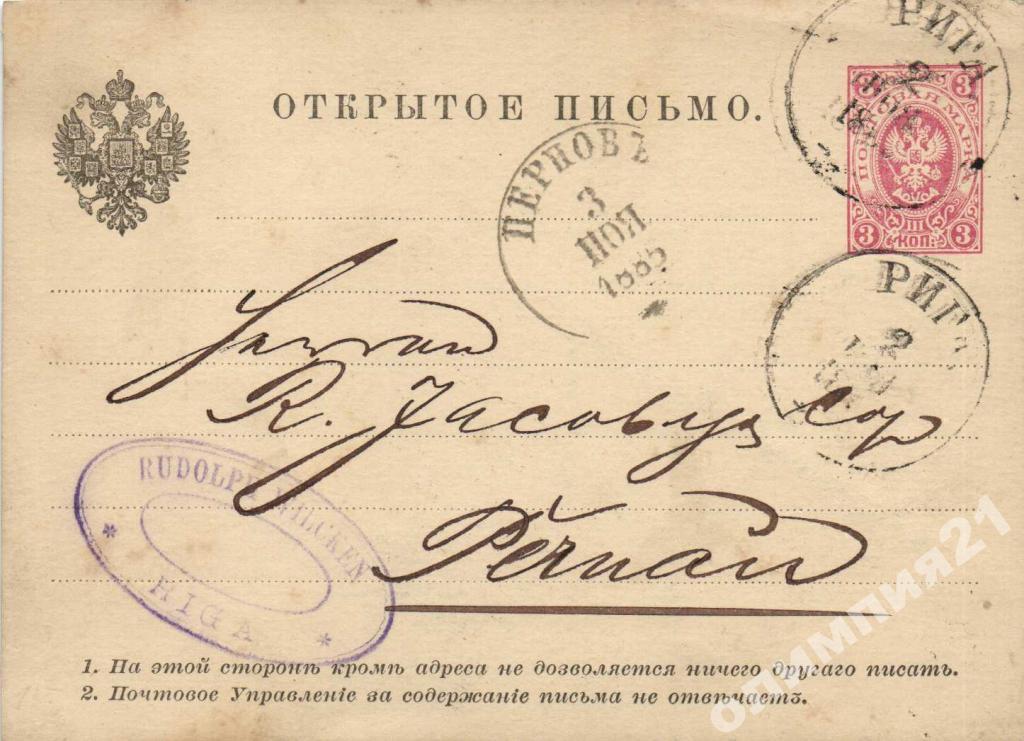 РИГА
2
НОЯ
3 3
ПОЧТОВАЯ МАРКА
III
3 КОП. 3
ОТКРЫТОЕ ПИСЬМО.
ПЕРНОВЪ
3
НОЯ
1885
РИГА
2
Herren
R. Jacoby & Co
Pernau
RUDOLPH WILCKEN
* RIGA *
1. На этой сторонѣ кромѣ адреса не дозволяется ничего другаго писать.
2. Почтовое Управленіе за содержаніе письма не отвѣчаетъ.
олимпия21